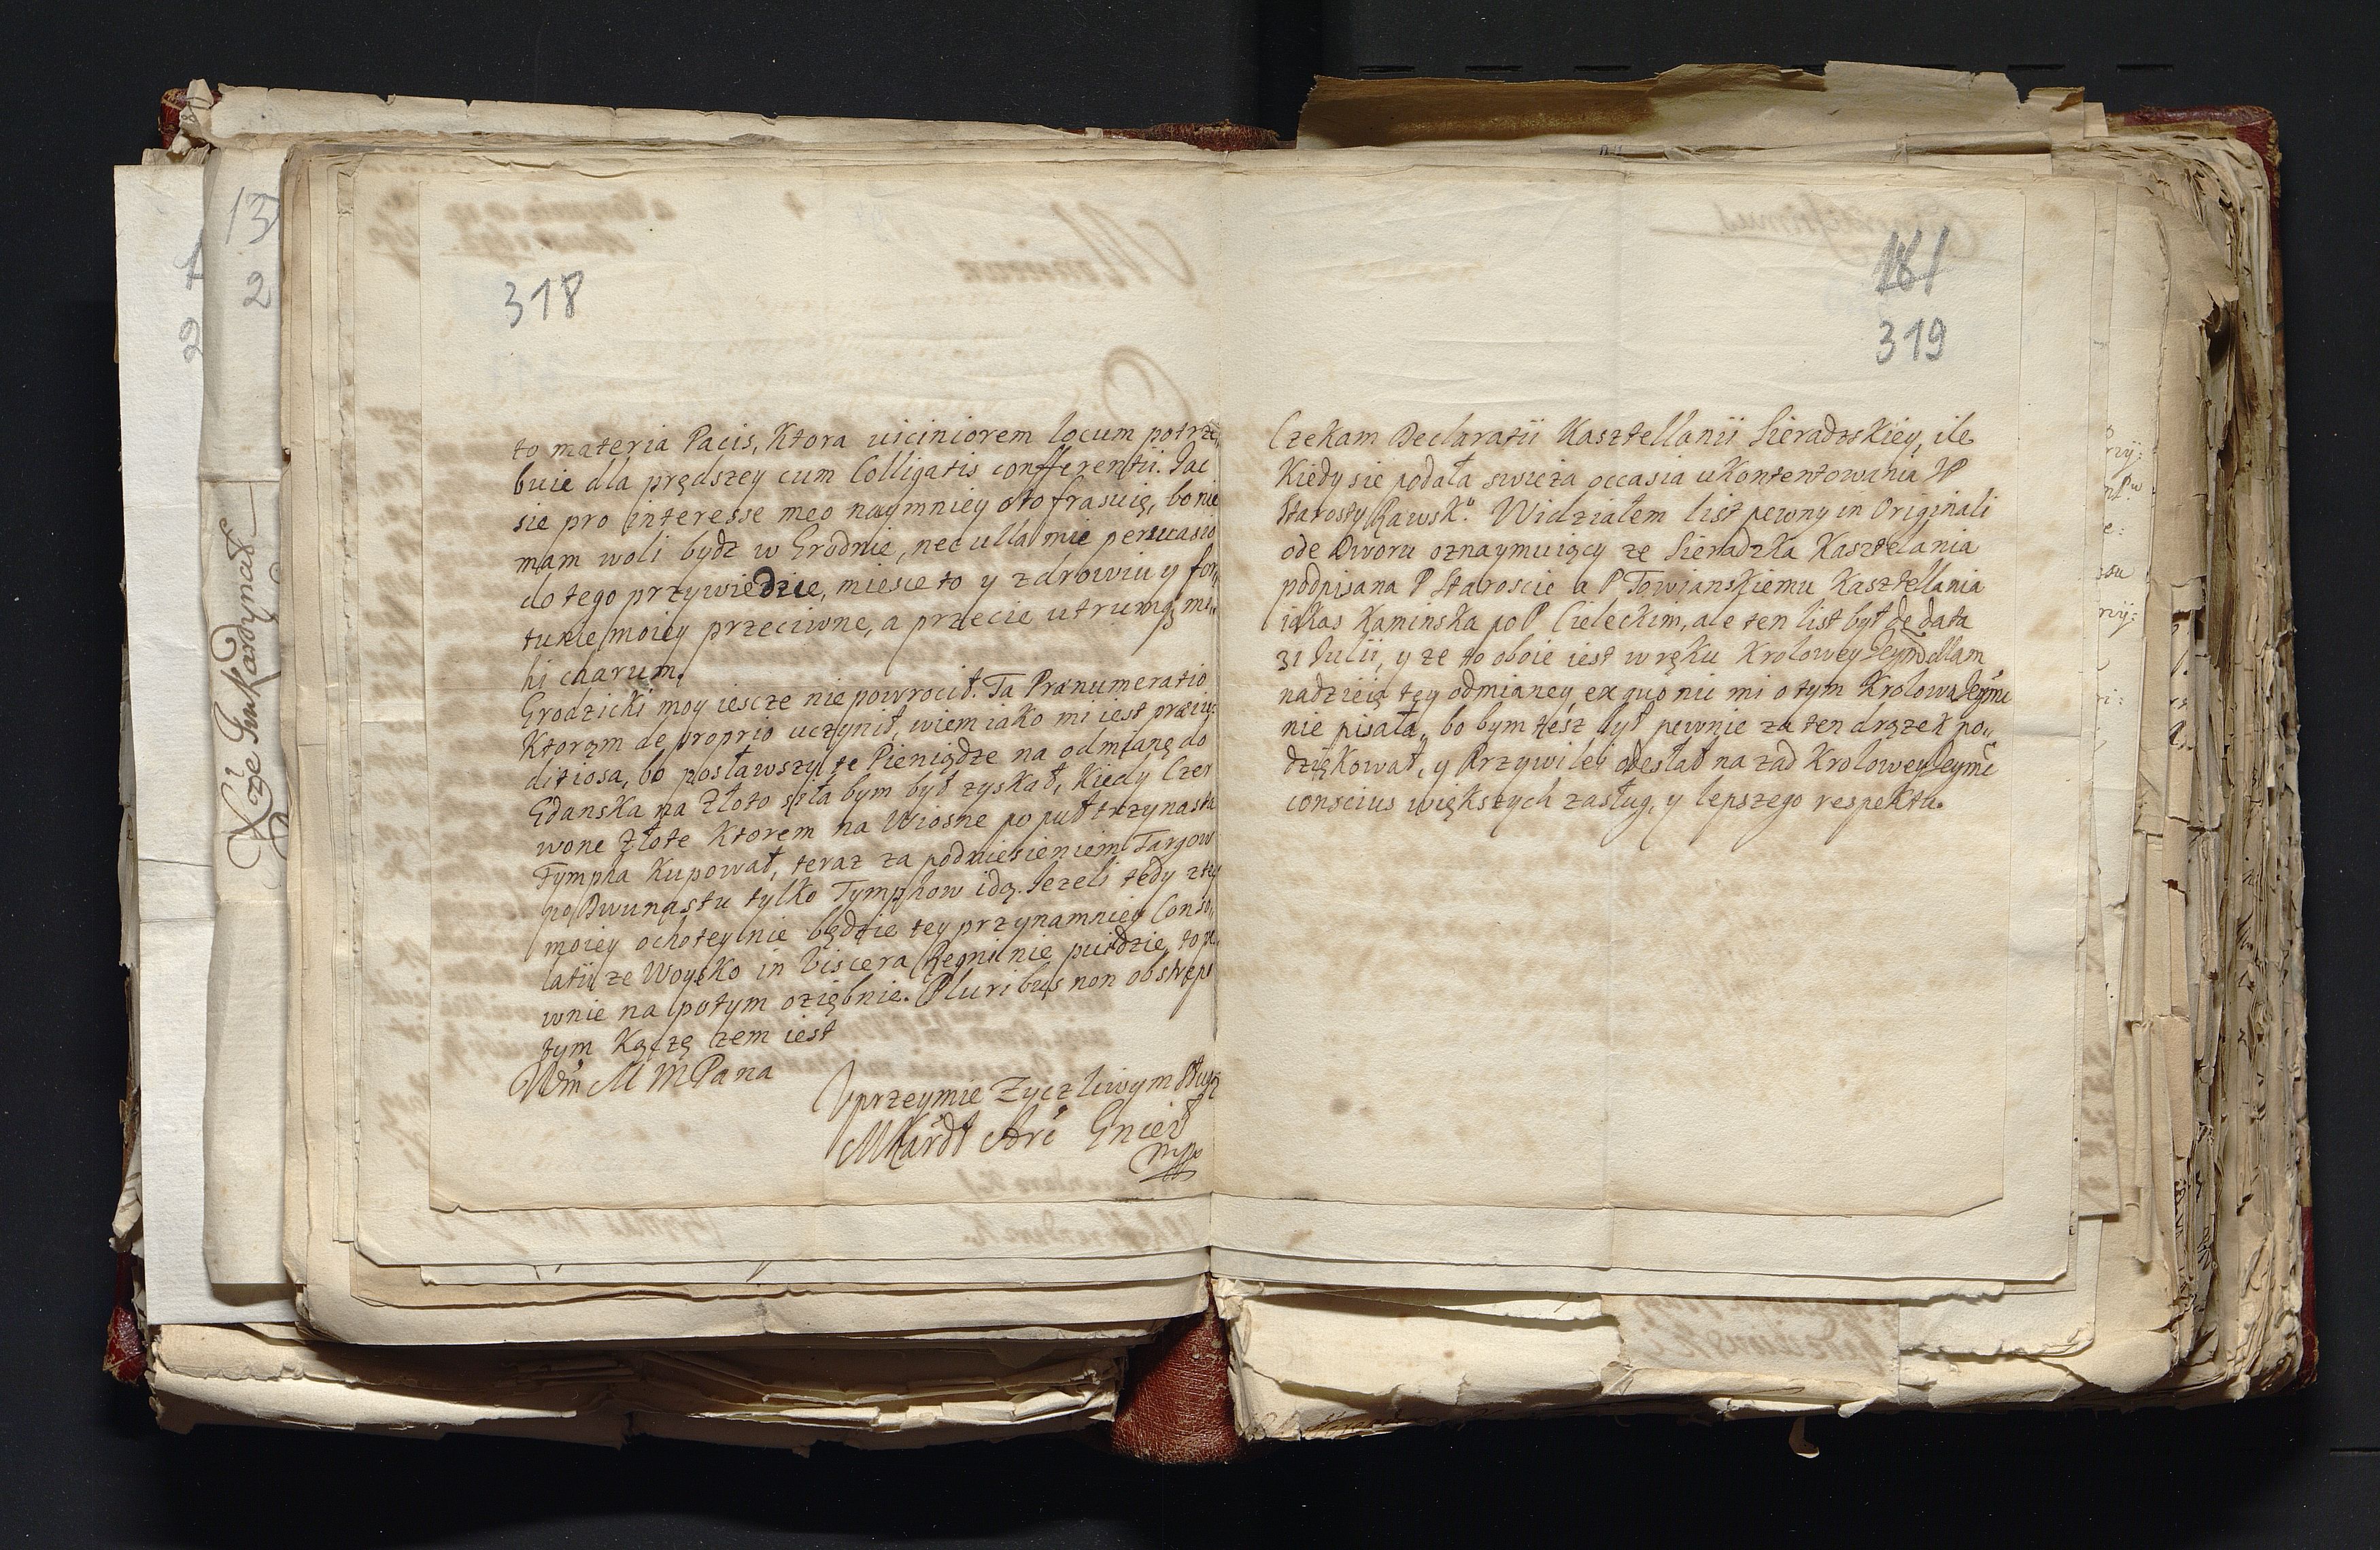 318
to materia Pacis, Ktora viciniorem locum potrze„
buie dla prędszey cum Colligatis confferentii. Iac
sie pro interesse meo naymniey oto frasuię, bo nie
mam woli bydz w Grodnie, nec ulla mie persuasio
do tego przywiedzie, miesce to y zdrowiu y for„
tunie moiey przeciwne, a przecie utrumq; mi„
hi charum.
Grodzicki moy iescze nie powrocił. Ta Prænumeratio
Ktorąm de proprio uczynił, wiem iako mi iest præiu„
ditiosa, bo posławszy te Pieniądze na odmianę do
Gdanska na Złoto siła bym był zyskał, Kiedy Czer
wone Złote Ktorem na Wiosne po puł trzynasta
Tympha Kupował, teraz za podniesieniem Targow
po Dwunastu tylko Tymphow idą. Iezeli tedy z tey
moiey ochotey nie będzie tey przynamniey Conso„
latii ze Woysko in Viscera Regni nie puidzie, to pe„
wnie na potym oziębnie. Pluribus non obstrepo
tym Kączę zem iest
Wm̃ M M Pana
Uprzeymie Zyczliwym Sługą
MKardł Arc̃ Gnieź
mpp
181
319
Czekam Declaratii Kasztellanii Sieradzskiey, ile
Kiedy sie podała swieża occasia uKontentowania JP
Starosty Rawsk.º Widziałem list pewny in Originali
ode Dworu oznaymuiący ze Sieradzka Kasztelania
podpisana P Staroscie a P. Towianskiemu Kasztellania
iakas Kaminska po P Cieleckim, ale ten list był de data
31 Iulii, y ze to oboie iest w ręku Krolowey Ieym̃ći Mam
nadzieię tey odmianey, ex quo nic mi o tym Krolowa Ieym̃ć
nie pisała, bo bym tesz był pewnie za ten drązek po„
dziękował, y Przywiley odesłał na zad Krolowey Ieymć
conscius większych zasług, y lepszego respektu.
13
2
1
2
Xże Imć Kardynał